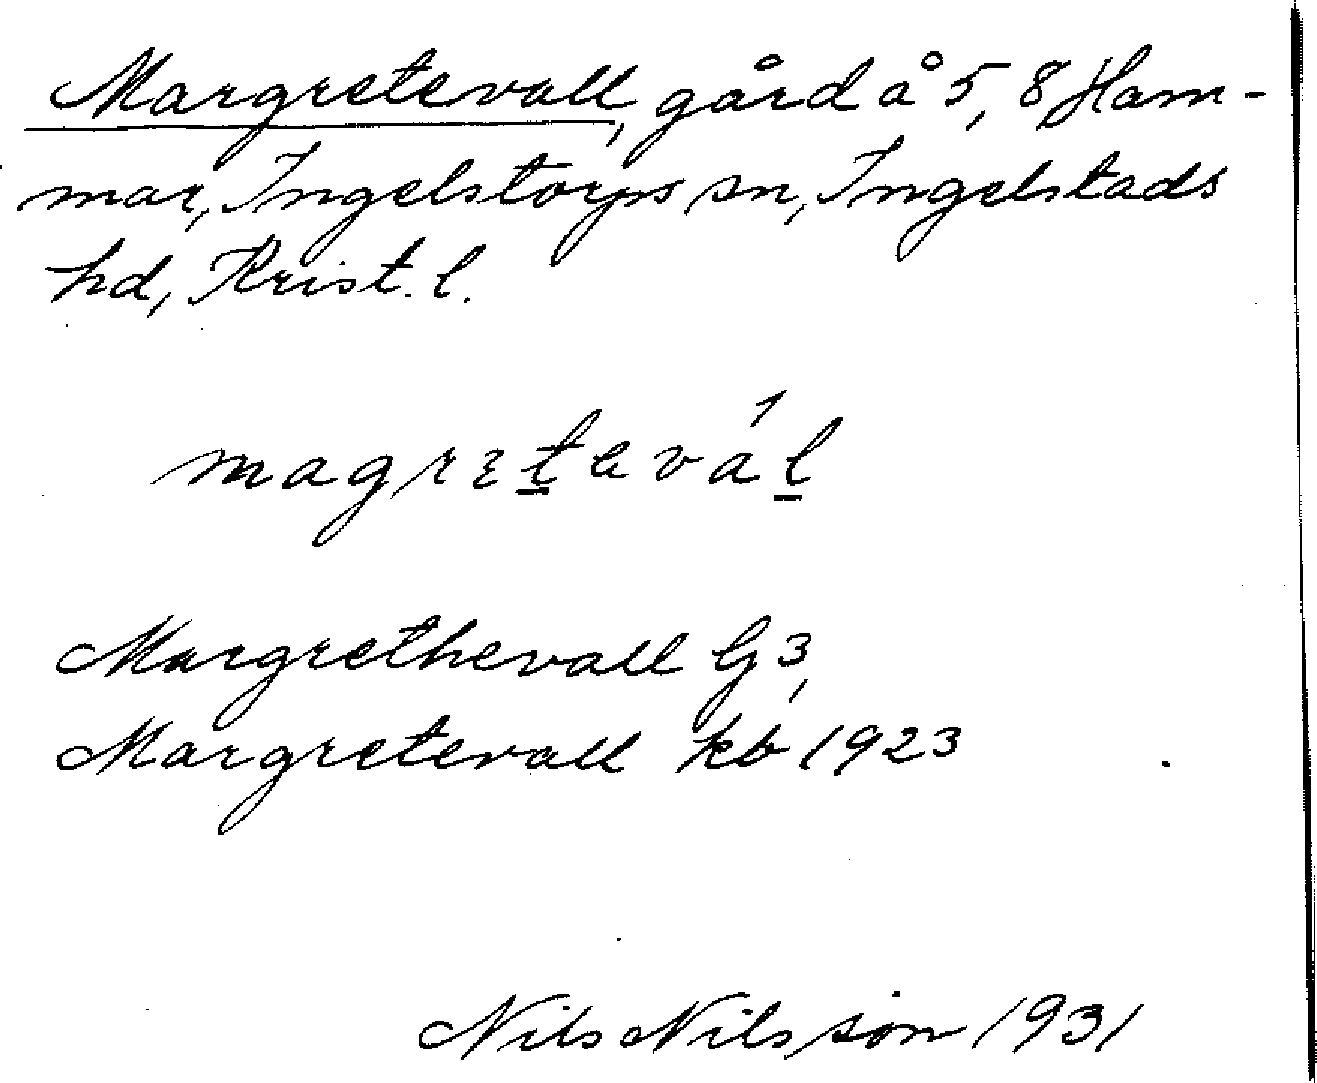 Margretevall, gård å 5, 8 Ham-
mar, Ingelstorps sn, Ingelstads
hd, Krist. l.
magrɛt̲evál̲
Margrethevall G 3,
Margretevall kb 1923
Nils Nilsson 1931